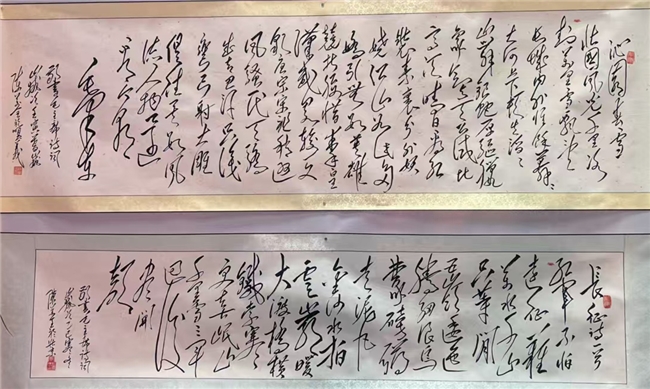 沁园春雪
北国风光千里冰
封万里雪飘望
长城内外惟余莽莽
大河上下顿失滔滔
山舞银蛇原驰蜡
象欲与天公试比
高须晴日看红
装素裹分外妖
娆江山如此多
娇引无数英雄
竞折腰惜秦皇
汉武略输文
采唐宗宋祖稍逊
风骚一代天骄
成吉思汗只识
弯弓射大雕
俱往矣数风
流人物还
看今朝
毛泽东
敬书毛主席诗词
长征诗一首
红军不怕
远征难
万水千山
只等闲
五岭逶迤
腾细浪乌
蒙磅礴
走泥丸
金沙水拍
云崖暖
大渡桥横
铁索寒
更喜岷山
千里雪三军
过后
尽开
颜
敬书毛主席诗词